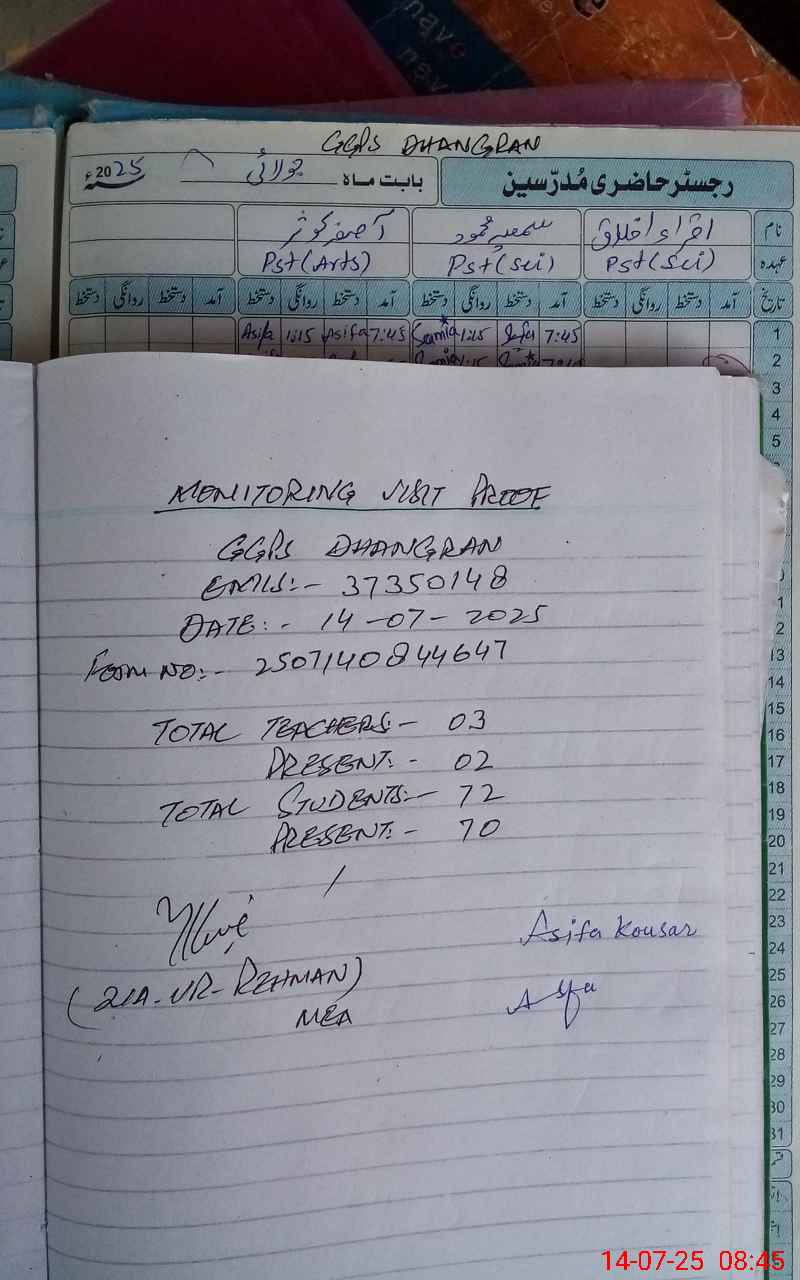 navo
nav
GGPS DHANGRAN
رجسٹر حاضری مُدرّسین
بابت ماہ جولائی 2025ء
نام اقراء اخلاق سمعیہ محمود آصفہ کوثر
عہدہ Pst(Sci) Pst(Sci) Pst(Arts)
تاریخ آمد دستخط روانگی دستخط آمد دستخط روانگی دستخط آمد دستخط روانگی دستخط آمد دستخط روانگی دستخط
1 7:45 1:15 Samia 7:45 Asifa 1:15 Asifa
2
3
4
5
MONITORING VISIT PROOF
GGPS DHANGRAN
EMIS:- 37350148
DATE:- 14-07-2025
FORM NO:- 2507140844647
TOTAL TEACHERS:- 03
PRESENT:- 02
TOTAL STUDENTS:- 72
PRESENT:- 70
Asifa Kousar
(ZIA-UR-REHMAN)
MEA
13
14
15
16
17
18
19
20
21
22
23
24
25
26
27
28
29
30
31
14-07-25 08:45